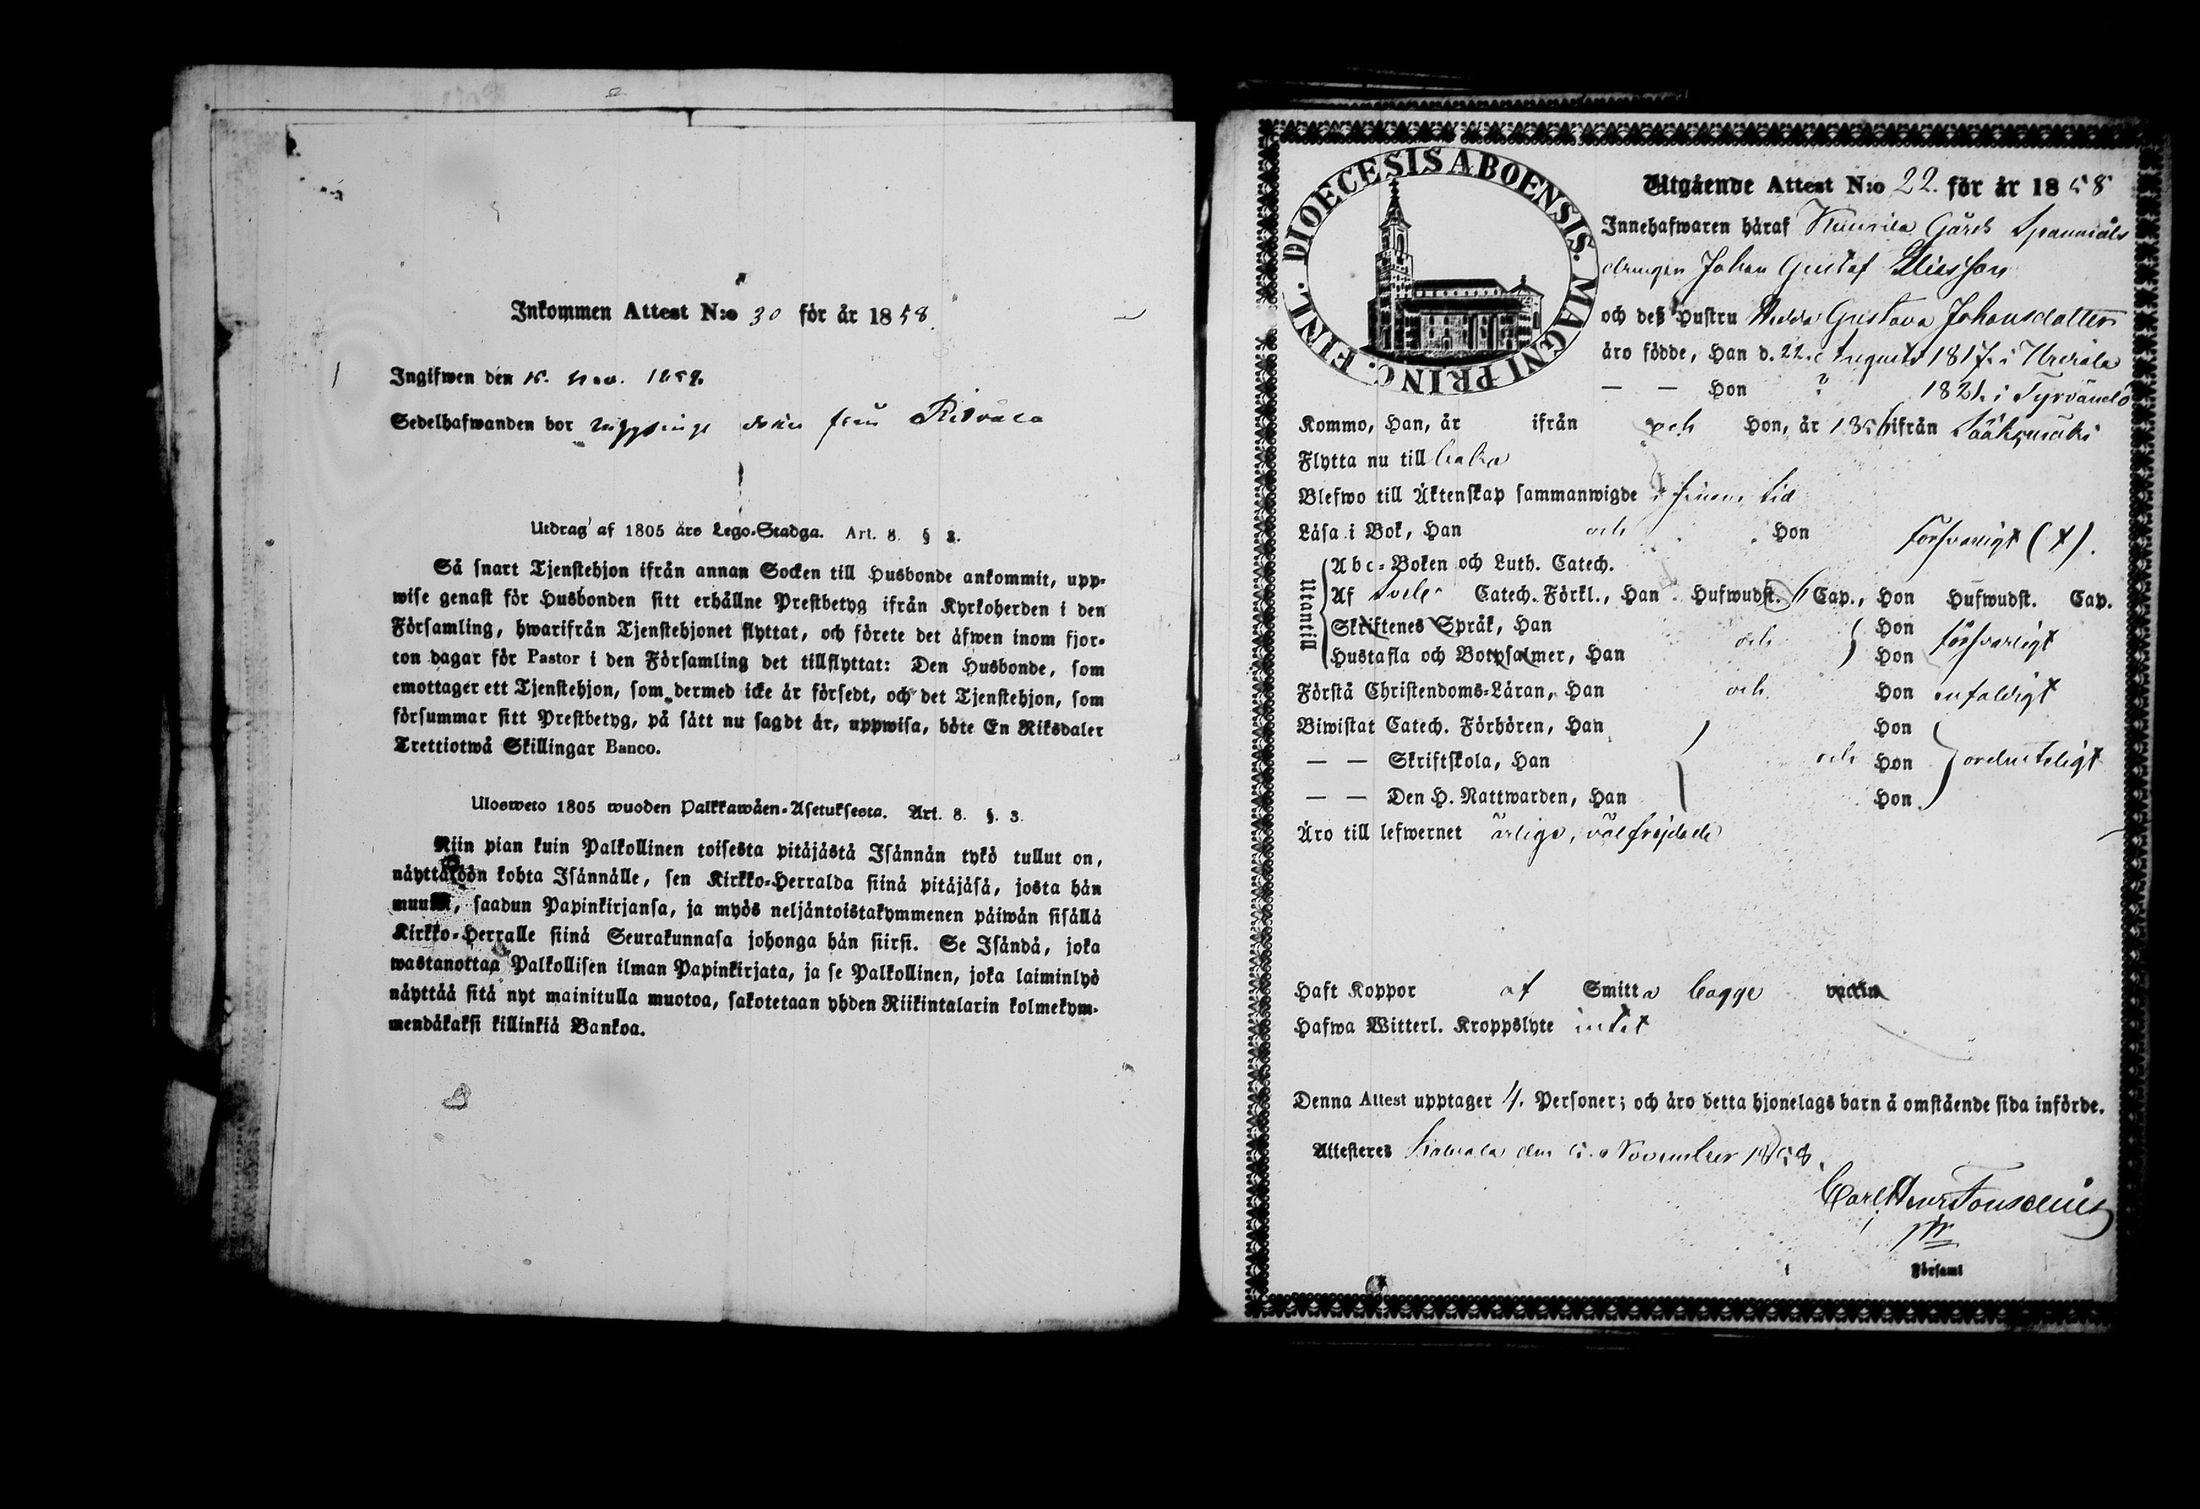 Inkommen Attest N:o 30 för år 1858.
Ingifwen den 15. Nov. 1858.
Sedelhafwanden bor från Ritvala
Utdrag af 1805 års Lego-Stadga. Art. 8. § 3.
Så snart Tjenstehjon ifrån annan Socken till Husbonde ankommit, upp-
wise genast för Husbonden sitt erhållne Prestbetyg ifrån Kyrkoherden i den
Församling, hwarifrån Tjenstehjonet flyttat, och förete det äfwen inom fjor-
ton dagar för Pastor i den Församling det tillflyttat: Den Husbonde, som
emottager ett Tjenstehjon, som dermed icke är försedt, och det Tjenstehjon, som
försummar sitt Prestbetyg, på sätt nu sagdt är, uppwisa, böte En Riksdaler
Trettiotwå Skillingar Banco.
Ulosweto 1805 wuoden Palkkawäen-Asetuksesta. Art. 8. §. 3.
Niin pian kuin Palkollinen toisesta pitäjästä Isännän tykö tullut on,
näyttäköön kohta Isännälle, sen Kirkko-Herralda siinä pitäjäsä, josta hän
muutti, saadun Papinkirjansa, ja myös neljäntoistakymmenen päiwän sisällä
Kirkko-Herralle siinä Seurakunnasa johonga hän siirsi. Se Isändä, joka
wastanottaa Palkollisen ilman Papinkirjata, ja se Palkollinen, joka laiminlyö
näyttää sitä nyt mainitulla muotoa, sakotetaan yhden Riikintalarin kolmekym-
mendäkaksi killinkiä Bankoa.
DIOECESIS ABOENSIS. MAGNI PRINC. FINL.
Utgående Attest N:o 22. för år 1858
Innehafwaren häraf Gårds Spannmåls
drengen Johan Gustaf Eliasson
och deß Hustru Hedda Gustava Johansdotter
äro födde, Han d. 22. Augusti 1817. i Urdiala
— — Hon ? 1821. i Tyrvändö
Kommo, Han, år ifrån och Hon, år ifrån Sääksmäki
Flytta nu till baka
Blefwo till Äktenskap sammanwigde i förra tid
Läsa i Bok, Han och Hon försvarligt (x).
Utantill
Abc-Boken och Luth. Catech.
Af Catech. Förkl., Han Hufwudst. Cap., Hon Hufwudst. Cap.
Skriftenes Språk, Han och Hon försvarligt
Hustafla och Botpsalmer, Han Hon
Förstå Christendoms-Läran, Han och Hon enfaldigt
Biwistat Catech. Förhören, Han Hon
— — Skriftskola, Han och Hon ordenteligt
— — Den H. Nattwarden, Han Hon
Äro till lefwernet ärlige, välfrejdade
Haft Koppor af Smitta bägge
Hafwa Witterl. Kroppslyte intet
Denna Attest upptager 4. Personer; och äro detta hjonelags barn å omstående sida införde.
Attesteres den 5. November 1858.
Församl